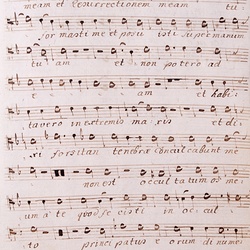 meam et resurrectionem meam tu
formasti me et posuisti super manum
tuam et non potero ad
te am et habi
tavero in extremis maris et di
xi forsitan tenebrae conculcabunt me
non est occultatum os me
um a te quod fecisti in occul
to principatus eorum dinume